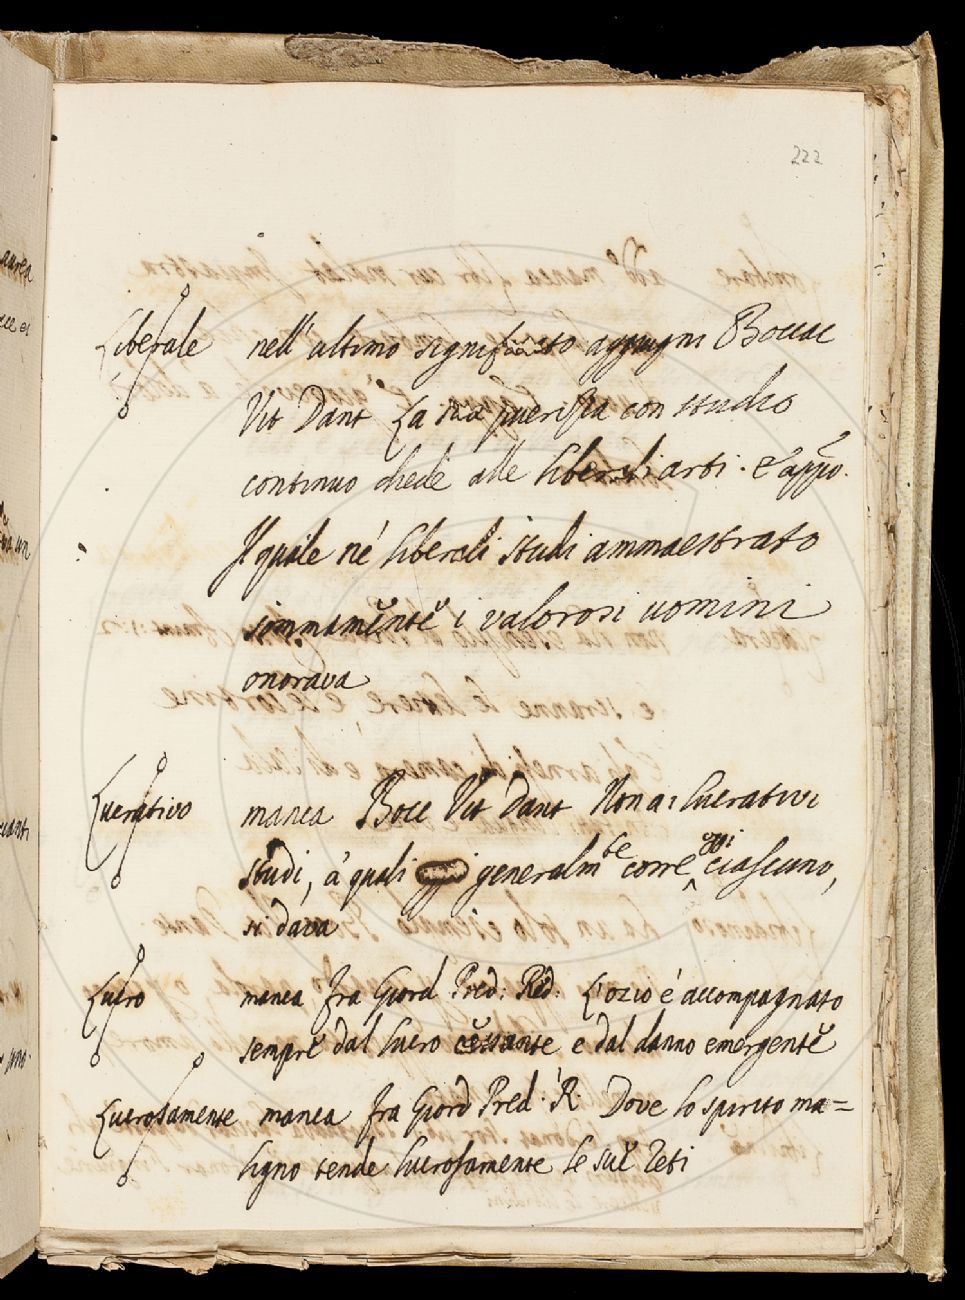 222
Liberale nell' ultimo significato aggiugni Boccac
Vit Dant La sua puerizia con studio
continuo diede alle liberali arti. E app.o
Il quale né liberali studi ammaestrato
sommamente i valorosi uomini
onorava
Lucrativo manca Bocc Vit Dant Non a i lucrativi
studi, à quali generalm.te corre oggi ciascuno,
si dava
Lucro manca fra Giord Pred. Red. L'ozio é accompagnato
sempre dal lucro cessante e dal danno emergente
Lucrosamente manca fra Giord Pred. R. Dove lo spirito ma=
ligno tende lucrosamente le sue reti